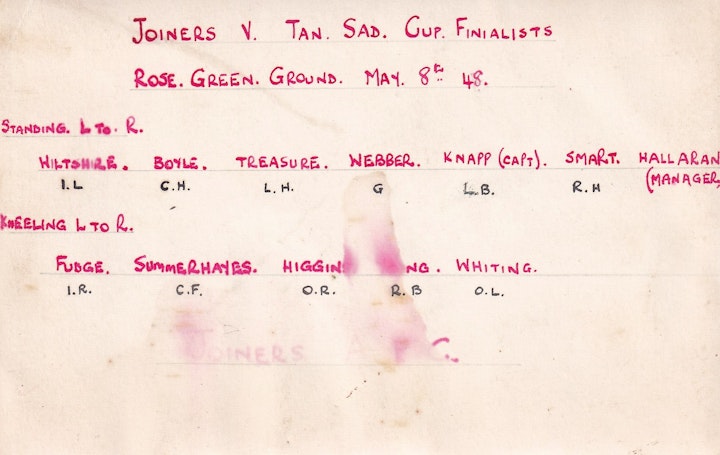 JOINERS V. TAN. SAD. CUP. FINIALISTS
ROSE. GREEN. GROUND. MAY. 8th 48.
STANDING. L TO. R.
WILTSHIRE. BOYLE. TREASURE. WEBBER. KNAPP (CAPT). SMART. HALLARAN
I.L C.H. L.H. G L.B. R.H (MANAGER)
KNEELING L TO R.
FUDGE. SUMMERHAYES. HIGGIN NG. WHITING.
I.R. C.F. O.R. R.B O.L.
JOINERS F C.